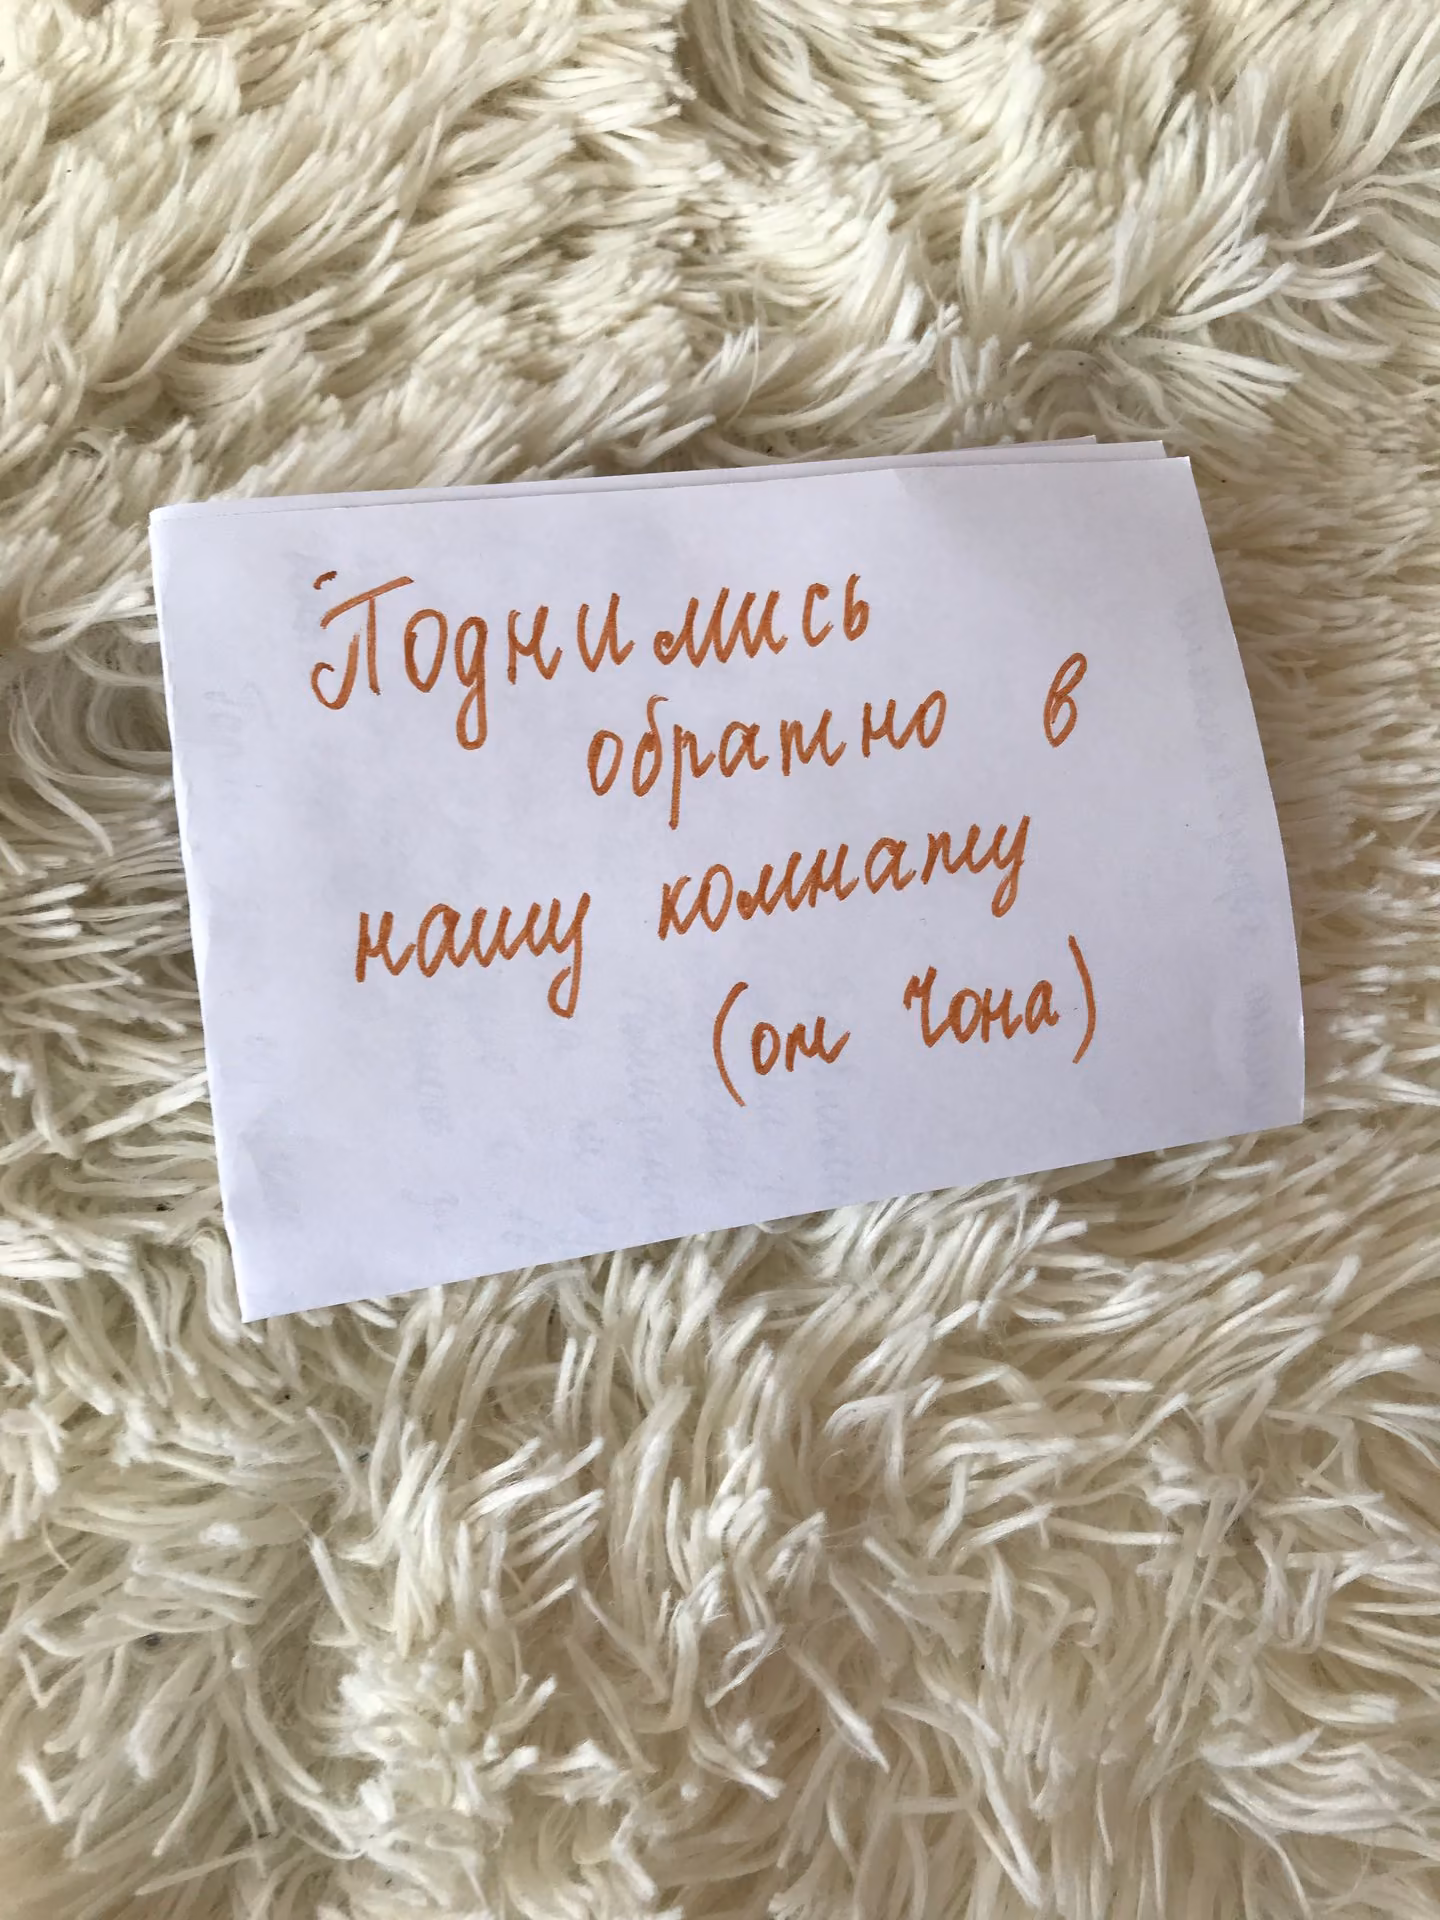 Поднимись
обратно в
нашу комнату
(от Чона)